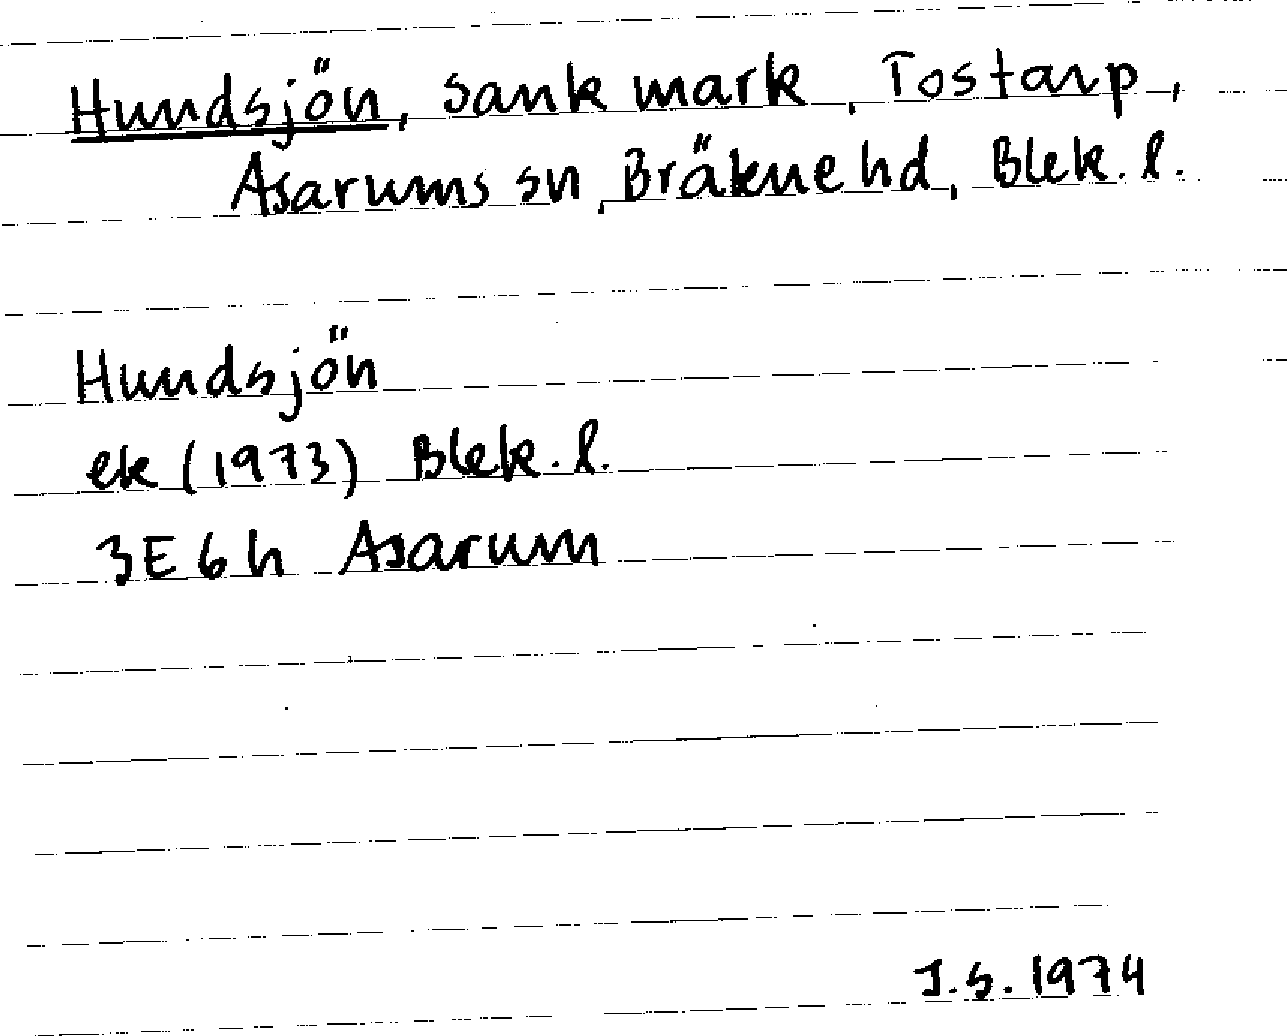 Hundsjön, sank mark, Tostarp,
Asarums sn, Bräkne hd, Blek. l.
Hundsjön
ek (1973) Blek. l.
3E6h Asarum
I.S. 1974